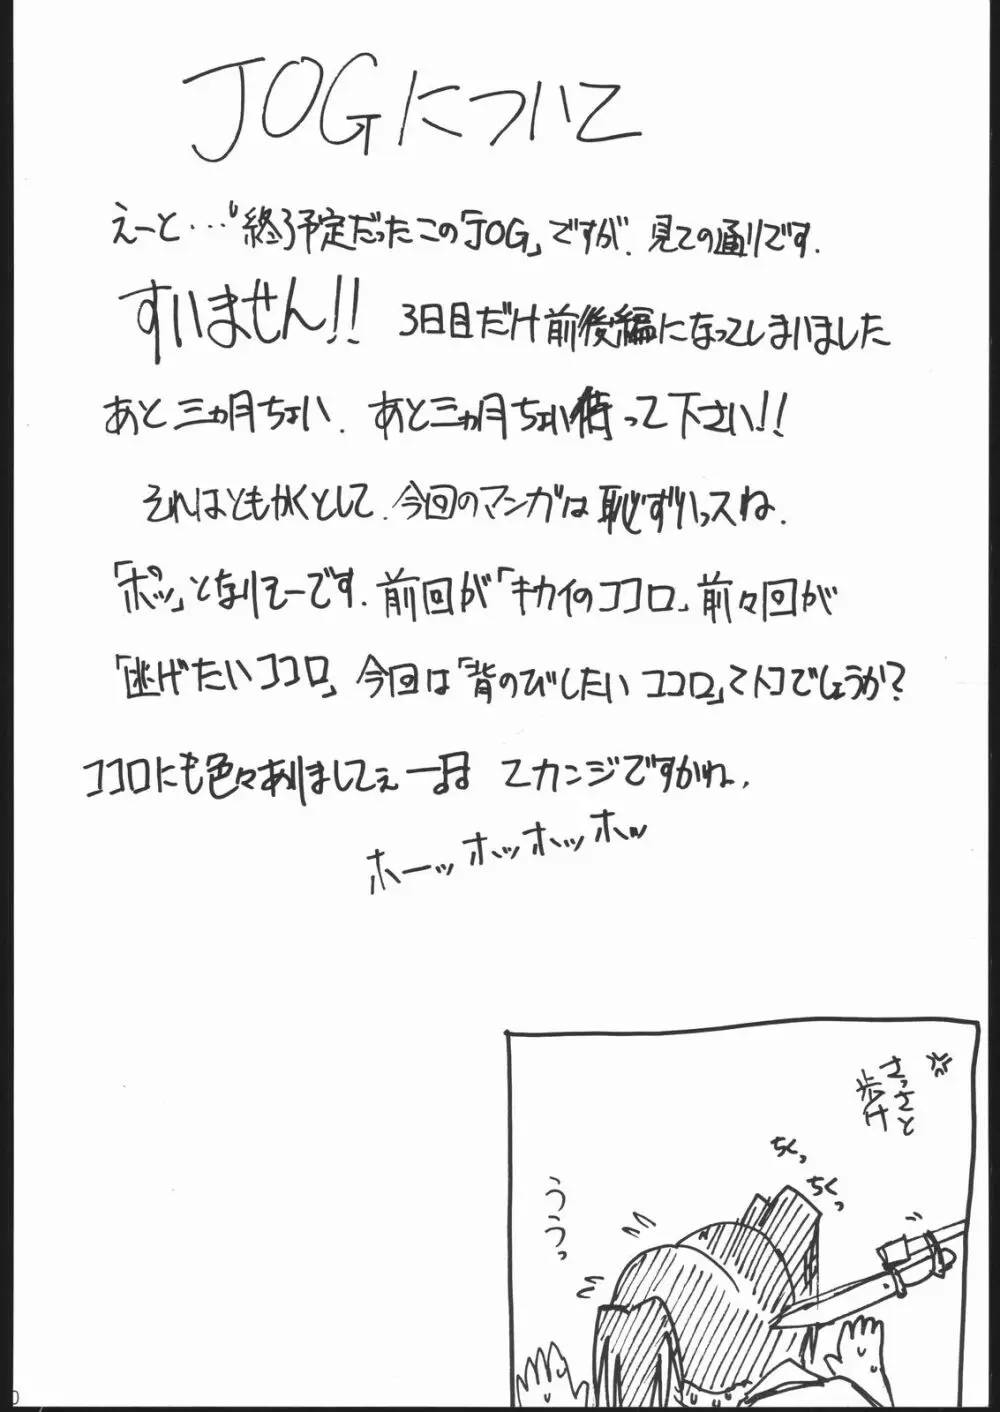 JOGについて
えーと…終了予定だったこの「JOG」ですが、見ての通りです.
すいません!! 3日目だけ前後編になってしまいました
あと三ヵ月ちょい、あと三ヵ月ちょい待って下さい!!
それはともかくとして、今回のマンガは恥ずいっスね.
「ポッ」となりそーです. 前回が「キカイのココロ」前々回が
「逃げたいココロ」今回は「背のびしたいココロ」てトコでしょうか?
ココロにも色々ありましてぇー
てカンジですかね.
ホーッホッホッホッ
さっさと
歩け
ちくっ
ちくっ
ううっ
0